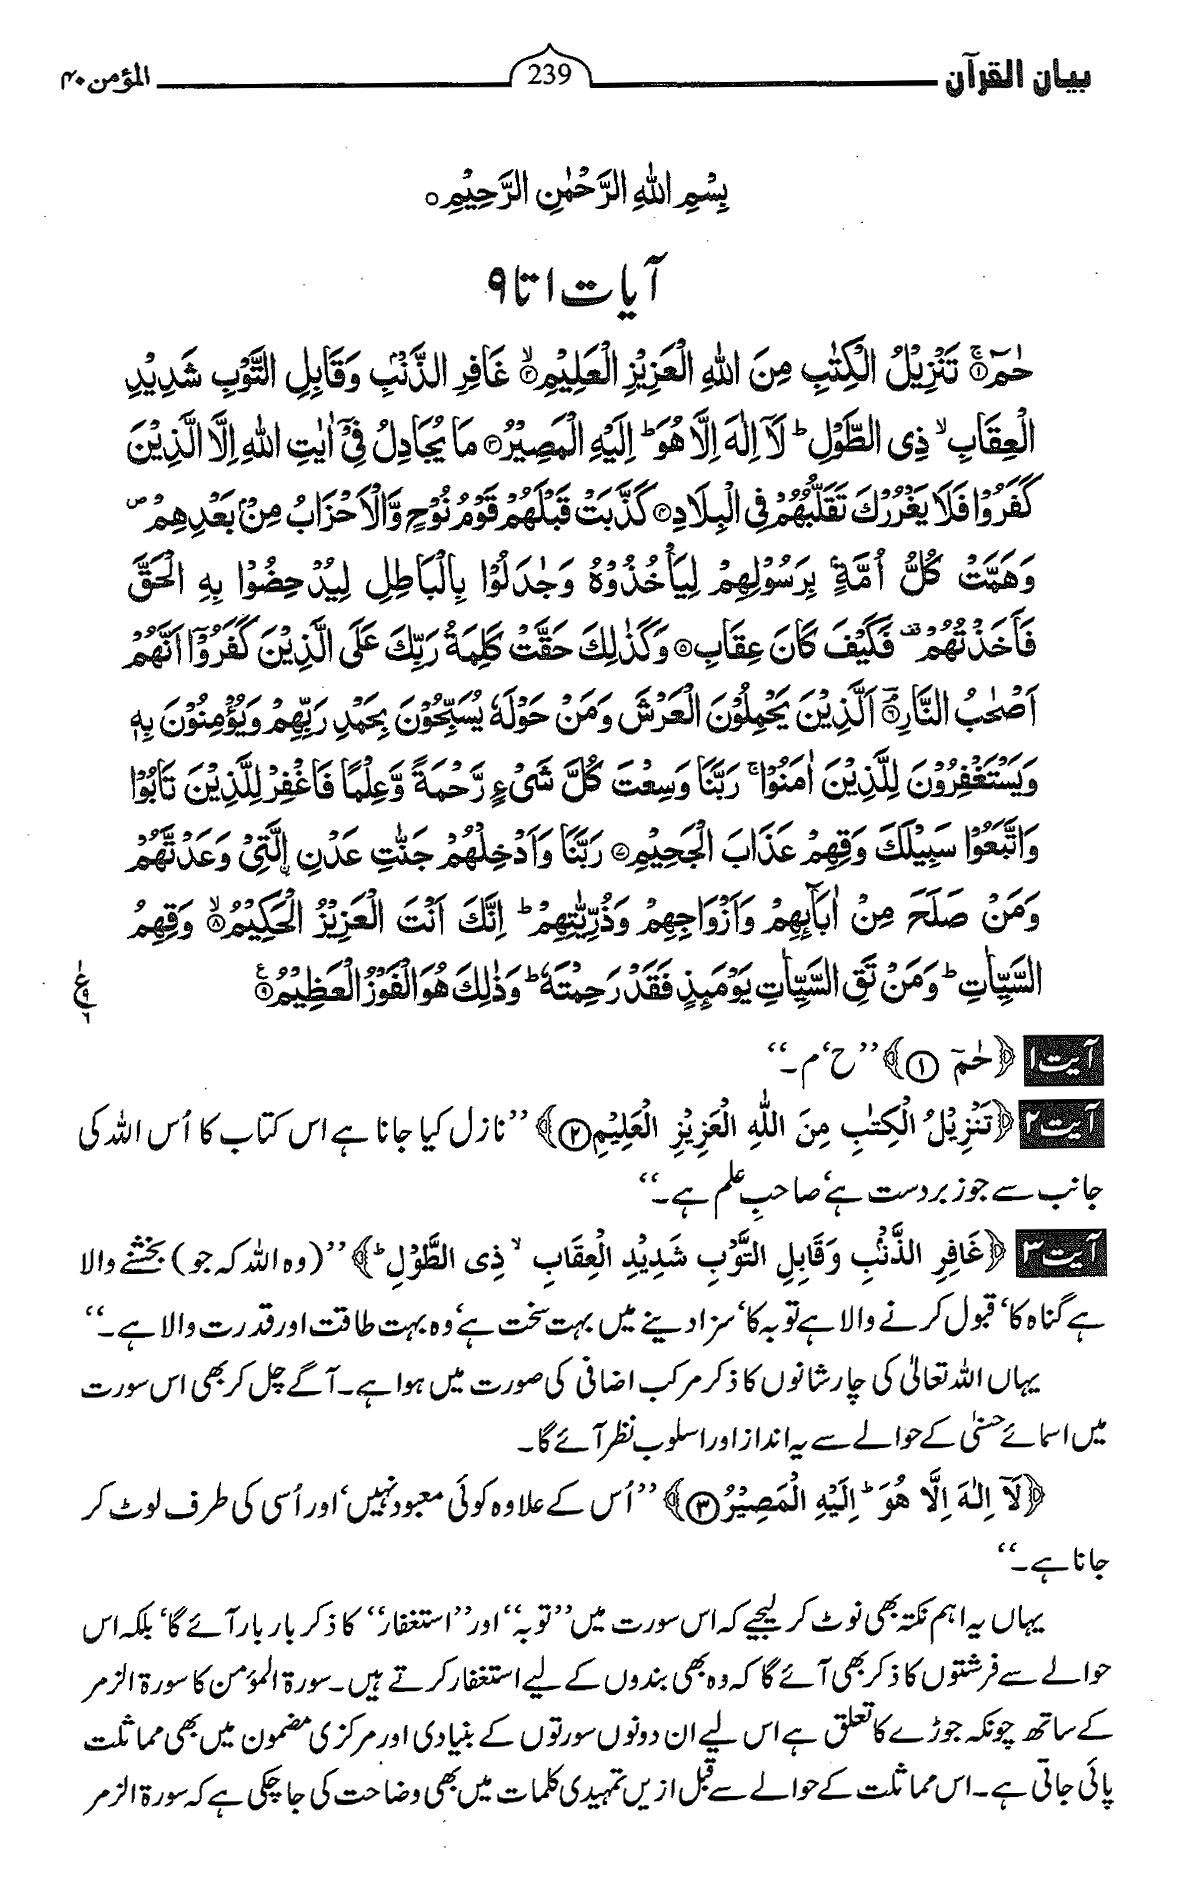 بیان القرآن 239 المؤمن ۴۰
بِسْمِ اللهِ الرَّحْمٰنِ الرَّحِيْمِ ○
آیات ۱ تا ۹
حٰمٓ ۚ﴿۱﴾ تَنْزِيْلُ الْكِتٰبِ مِنَ اللهِ الْعَزِيْزِ الْعَلِيْمِ ۙ﴿۲﴾ غَافِرِ الذَّنْۢبِ وَقَابِلِ التَّوْبِ شَدِيْدِ
الْعِقَابِ ۙ ذِى الطَّوْلِ ؕ لَاۤ اِلٰهَ اِلَّا هُوَ ؕ اِلَيْهِ الْمَصِيْرُ ﴿۳﴾ مَا يُجَادِلُ فِىْۤ اٰيٰتِ اللهِ اِلَّا الَّذِيْنَ
كَفَرُوْا فَلَا يَغْرُرْكَ تَقَلُّبُهُمْ فِى الْبِلَادِ ﴿۴﴾ كَذَّبَتْ قَبْلَهُمْ قَوْمُ نُوْحٍ وَّالْاَحْزَابُ مِنْۢ بَعْدِهِمْ ۪
وَهَمَّتْ كُلُّ اُمَّةٍۭ بِرَسُوْلِهِمْ لِيَاْخُذُوْهُ وَجٰدَلُوْا بِالْبَاطِلِ لِيُدْحِضُوْا بِهِ الْحَقَّ
فَاَخَذْتُهُمْ ۫ فَكَيْفَ كَانَ عِقَابِ ﴿۵﴾ وَكَذٰلِكَ حَقَّتْ كَلِمَةُ رَبِّكَ عَلَى الَّذِيْنَ كَفَرُوْۤا اَنَّهُمْ
اَصْحٰبُ النَّارِ ﴿۶﴾ اَلَّذِيْنَ يَحْمِلُوْنَ الْعَرْشَ وَمَنْ حَوْلَهٗ يُسَبِّحُوْنَ بِحَمْدِ رَبِّهِمْ وَيُؤْمِنُوْنَ بِهٖ
وَيَسْتَغْفِرُوْنَ لِلَّذِيْنَ اٰمَنُوْا ۚ رَبَّنَا وَسِعْتَ كُلَّ شَىْءٍ رَّحْمَةً وَّعِلْمًا فَاغْفِرْ لِلَّذِيْنَ تَابُوْا
وَاتَّبَعُوْا سَبِيْلَكَ وَقِهِمْ عَذَابَ الْجَحِيْمِ ﴿۷﴾ رَبَّنَا وَاَدْخِلْهُمْ جَنّٰتِ عَدْنِ ۟الَّتِىْ وَعَدْتَّهُمْ
وَمَنْ صَلَحَ مِنْ اٰبَآئِهِمْ وَاَزْوَاجِهِمْ وَذُرِّيّٰتِهِمْ ؕ اِنَّكَ اَنْتَ الْعَزِيْزُ الْحَكِيْمُ ۙ﴿۸﴾ وَقِهِمُ
السَّيِّاٰتِ ؕ وَمَنْ تَقِ السَّيِّاٰتِ يَوْمَئِذٍ فَقَدْ رَحِمْتَهٗ ؕ وَذٰلِكَ هُوَ الْفَوْزُ الْعَظِيْمُ ﴿۹﴾ ع ۹ ۶
آیت ۱ ﴿حٰمٓ ۱﴾ ’’ح‘ م۔‘‘
آیت ۲ ﴿تَنْزِيْلُ الْكِتٰبِ مِنَ اللهِ الْعَزِيْزِ الْعَلِيْمِ ۲﴾ ’’نازل کیا جانا ہے اس کتاب کا اُس اللہ کی
جانب سے جو زبردست ہے‘ صاحبِ علم ہے۔‘‘
آیت ۳ ﴿غَافِرِ الذَّنْۢبِ وَقَابِلِ التَّوْبِ شَدِيْدِ الْعِقَابِ ۙ ذِى الطَّوْلِ ؕ﴾ ’’(وہ اللہ کہ جو) بخشنے والا
ہے گناہ کا‘ قبول کرنے والا ہے توبہ کا‘ سزا دینے میں بہت سخت ہے‘ وہ بہت طاقت اور قدرت والا ہے۔‘‘
یہاں اللہ تعالیٰ کی چار شانوں کا ذکر مرکب اضافی کی صورت میں ہوا ہے۔ آگے چل کر بھی اس سورت
میں اسمائے حسنیٰ کے حوالے سے یہ انداز اور اسلوب نظر آئے گا۔
﴿لَاۤ اِلٰهَ اِلَّا هُوَ ؕ اِلَيْهِ الْمَصِيْرُ ۳﴾ ’’اُس کے علاوہ کوئی معبود نہیں‘ اور اُسی کی طرف لوٹ کر
جانا ہے۔‘‘
یہاں یہ اہم نکتہ بھی نوٹ کر لیجیے کہ اس سورت میں ’’توبہ‘‘ اور ’’استغفار‘‘ کا ذکر بار بار آئے گا‘ بلکہ اس
حوالے سے فرشتوں کا ذکر بھی آئے گا کہ وہ بھی بندوں کے لیے استغفار کرتے ہیں۔ سورۃ المؤمن کا سورۃ الزمر
کے ساتھ چونکہ جوڑے کا تعلق ہے اس لیے ان دونوں سورتوں کے بنیادی اور مرکزی مضمون میں بھی مماثلت
پائی جاتی ہے۔ اس مماثلت کے حوالے سے قبل ازیں تمہیدی کلمات میں بھی وضاحت کی جا چکی ہے کہ سورۃ الزمر